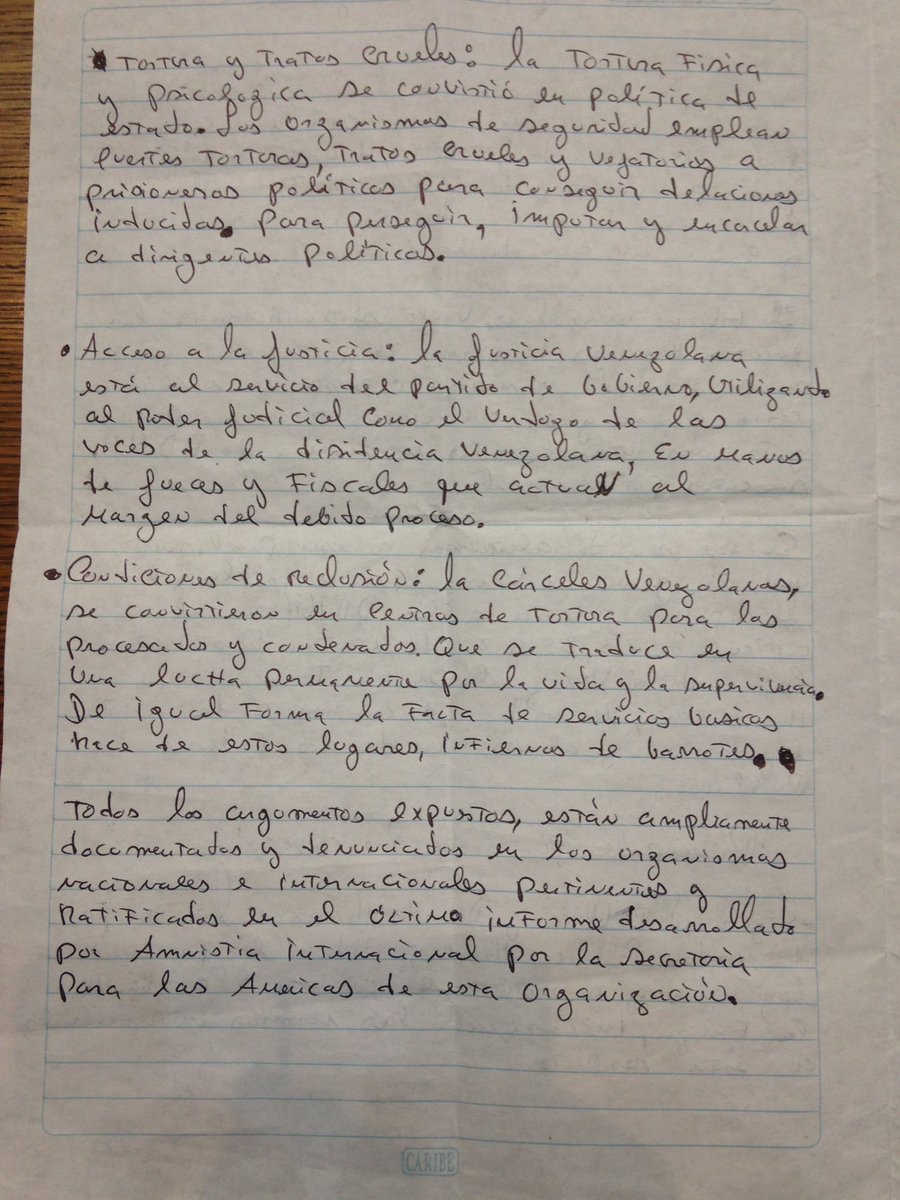 • Tortura y Tratos Crueles: la Tortura Fisica
y psicologica se convirtió en política de
estado. Los organismos de seguridad emplean
fuertes Torturas, Tratos Crueles y vejatorios a
prisioneros políticos para conseguir delaciones
inducidas. para perseguir, imputar y encarcelar
a dirigentes políticos.
• Acceso a la Justicia: la Justicia Venezolana
está al servicio del partido de Gobierno, Utilizando
al poder Judicial Como el Verdugo de las
voces de la disidencia Venezolana, En Manos
de Jueces y Fiscales que actuaN al
Margen del debido proceso.
• Condiciones de reclusión: la Cárceles Venezolanas,
se convirtieron en Centros de Tortura para los
procesados y condenados. Que se traduce en
Una lucha permanente por la vida y la supervivencia.
De igual Forma la Falta de servicios basicos
hace de estos lugares, infiernos de barrotes.
Todos los argumentos expuestos, están ampliamente
documentados y denunciados en los organismos
nacionales e internacionales pertinentes y
Ratificados en el último informe desarrollado
por Amnistia internacional por la secretaria
para las Americas de esta organización.
CARIBE